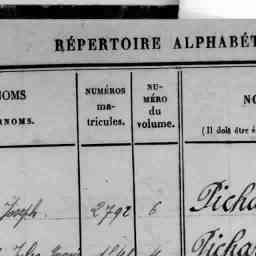 RÉPERTOIRE ALPHABÉT
NOMS
RNOMS.
NUMÉROS
ma-
tricules.
NU-
MÉRO
du
volume.
NO
(Il doit être é
Joseph. 2792 6 Picha
Jules Picha